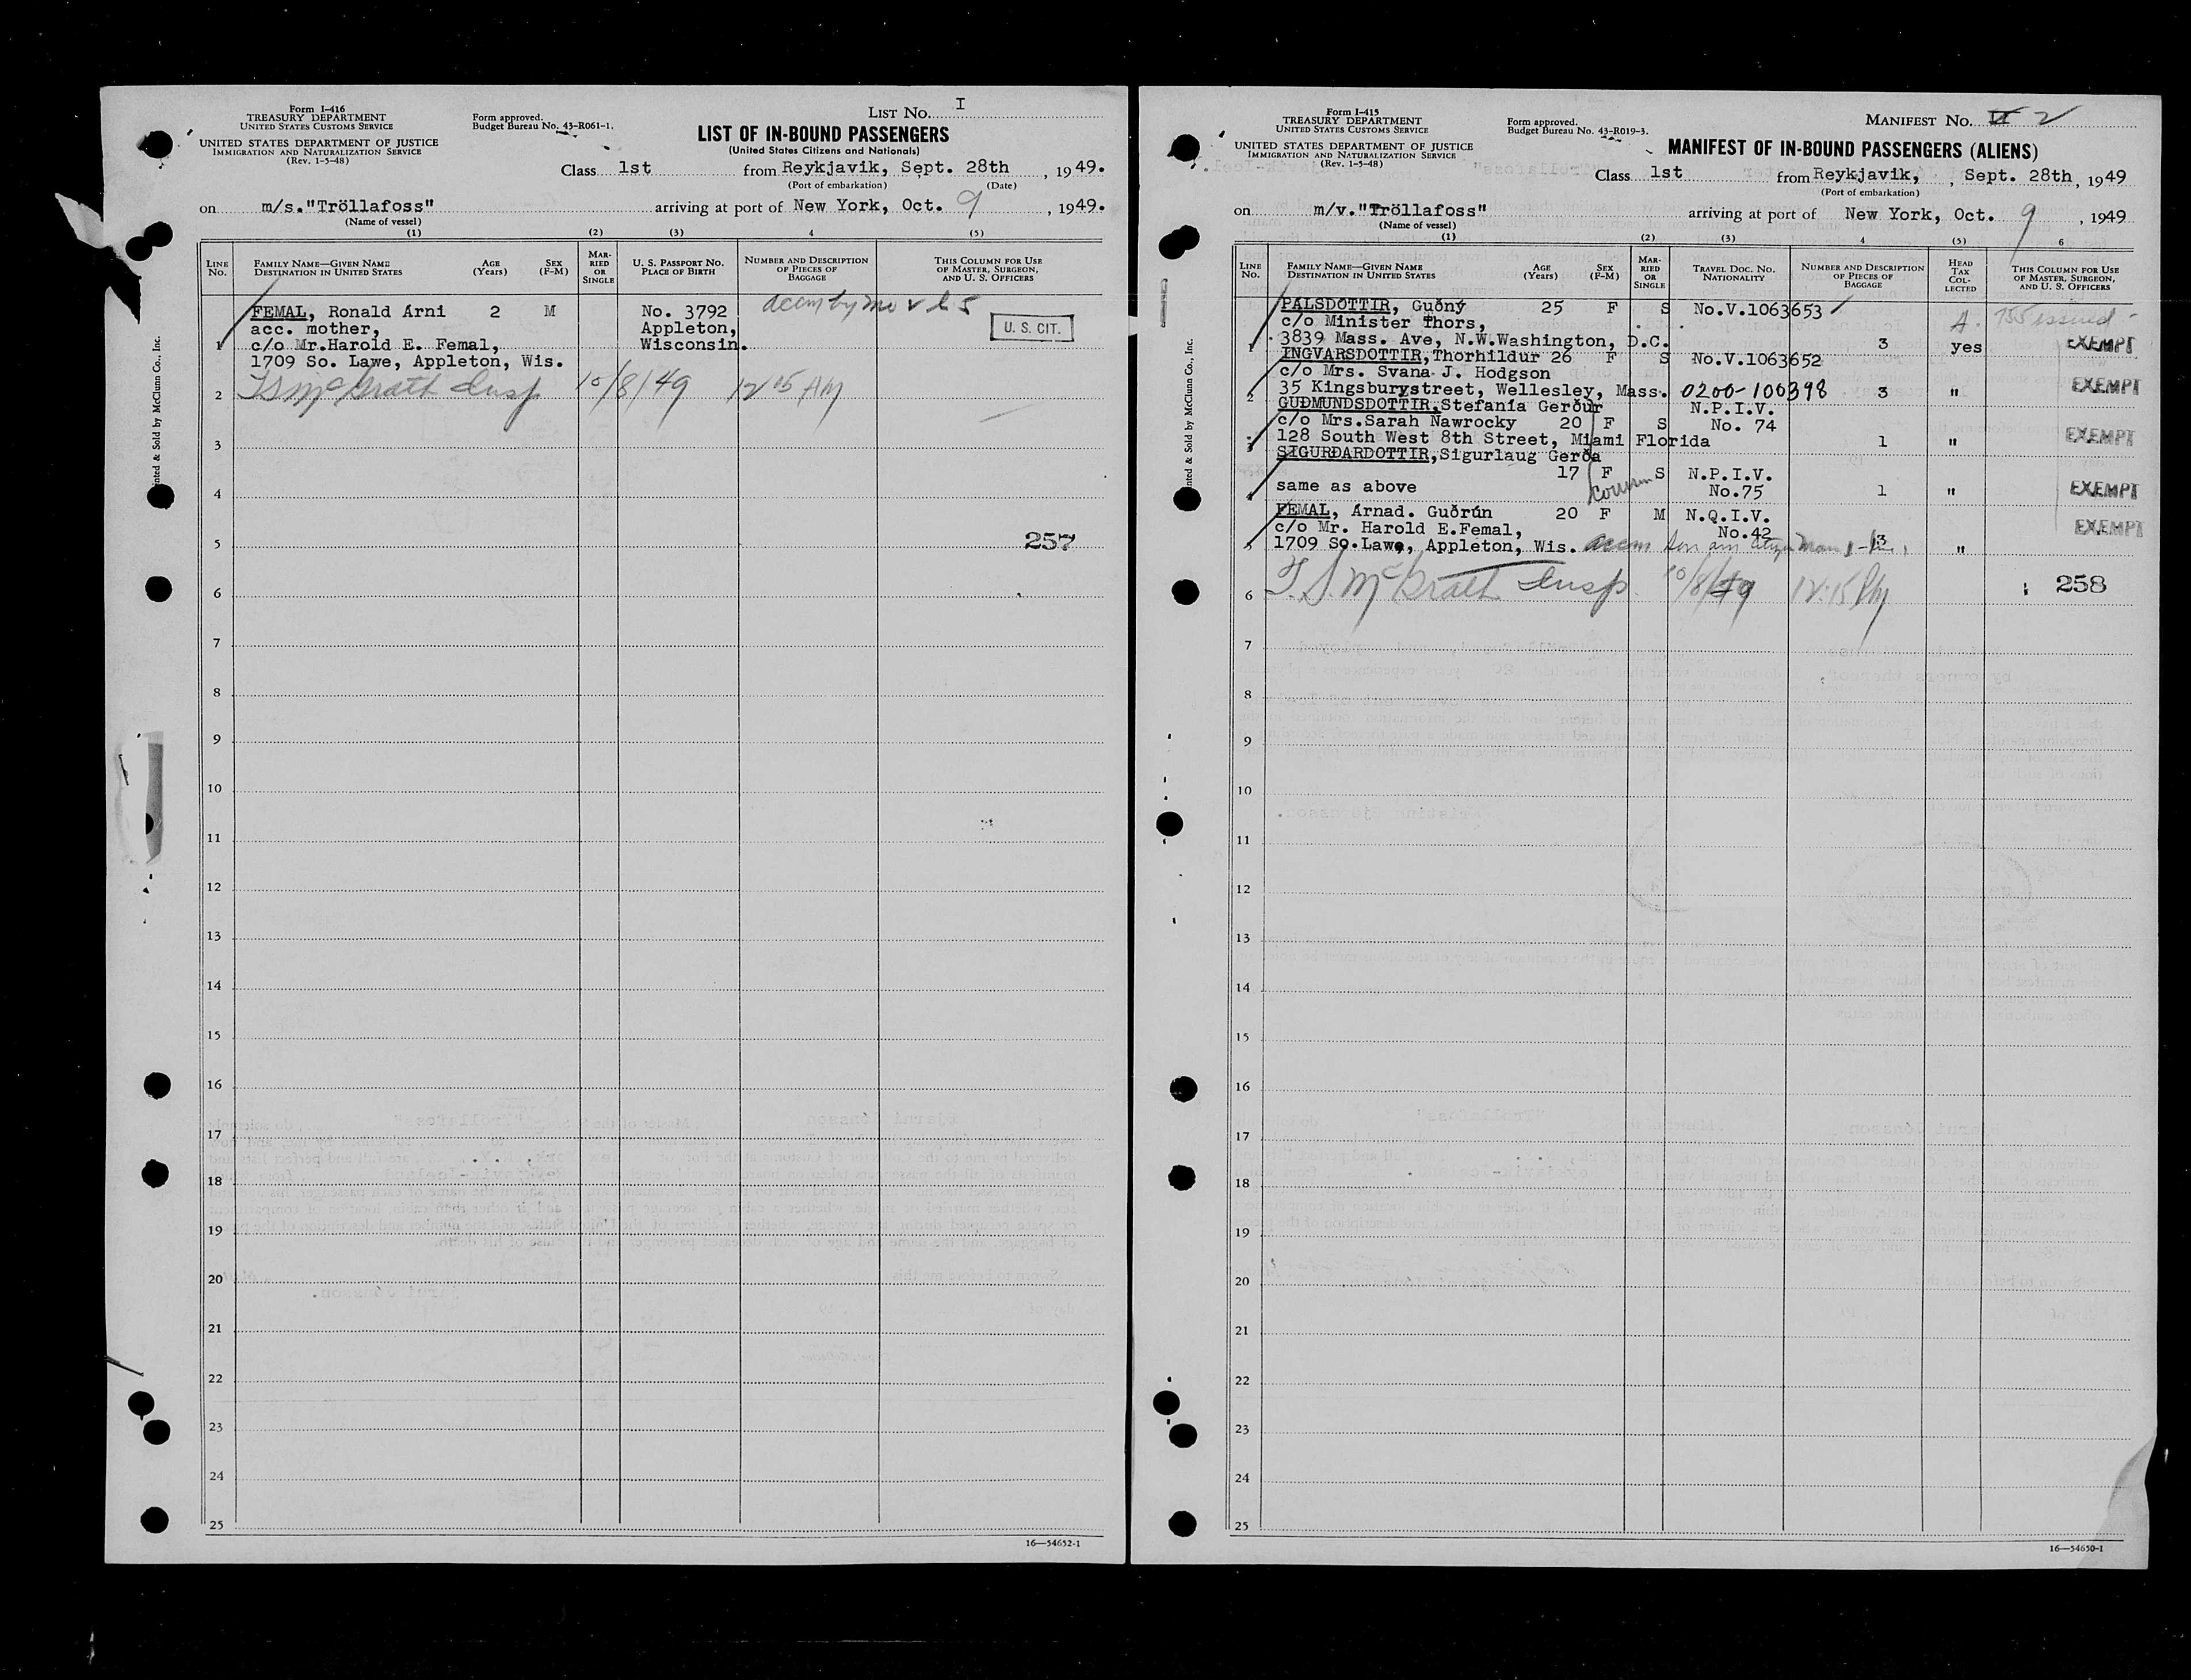 Form I-416
TREASURY DEPARTMENT
UNITED STATES CUSTOMS SERVICE
UNITED STATES DEPARTMENT OF JUSTICE
IMMIGRATION AND NATURALIZATION SERVICE
(Rev. 1-5-48)
Form approved.
Budget Bureau No. 43-R061-1.
LIST No. I
LIST OF IN-BOUND PASSENGERS
(United States Citizens and Nationals)
Class 1st from Reykjavik, Sept. 28th, 1949.
(Port of embarkation) (Date)
on m/s."Tröllafoss" arriving at port of New York, Oct. 9, 1949.
(Name of vessel)
(1) (2) (3) 4 (5)
LINE No. FAMILY NAME—GIVEN NAME DESTINATION IN UNITED STATES AGE (Years) SEX (F-M) MARRIED OR SINGLE U. S. PASSPORT NO. PLACE OF BIRTH NUMBER AND DESCRIPTION OF PIECES OF BAGGAGE THIS COLUMN FOR USE OF MASTER, SURGEON, AND U. S. OFFICERS
FEMAL, Ronald Arni 2 M No. 3792
acc. mother, Appleton, U. S. CIT.
1 c/o Mr.Harold E. Femal, Wisconsin.
1709 So. Lawe, Appleton, Wis.
2 T S McGrath Insp 10/8/49 12 15 AM
3
4
5 257
6
7
8
9
10
11
12
13
14
15
16
17
18
19
20
21
22
23
24
25
16—54652-1
Printed & Sold by McClunn Co., Inc.
Form I-415
TREASURY DEPARTMENT
UNITED STATES CUSTOMS SERVICE
UNITED STATES DEPARTMENT OF JUSTICE
IMMIGRATION AND NATURALIZATION SERVICE
(Rev. 1-5-48)
Form approved.
Budget Bureau No. 43-R019-3.
MANIFEST No. II 2
MANIFEST OF IN-BOUND PASSENGERS (ALIENS)
Class 1st from Reykjavik, Sept. 28th, 1949
(Port of embarkation)
on m/v."Tröllafoss" arriving at port of New York, Oct. 9, 1949
(Name of vessel)
(1) (2) (3) 4 (5) 6
LINE No. FAMILY NAME—GIVEN NAME DESTINATION IN UNITED STATES AGE (Years) SEX (F-M) MARRIED OR SINGLE TRAVEL DOC. NO. NATIONALITY NUMBER AND DESCRIPTION OF PIECES OF BAGGAGE HEAD TAX COLLECTED THIS COLUMN FOR USE OF MASTER, SURGEON, AND U. S. OFFICERS
PALSDOTTIR, Guðný 25 F S No.V.1063653 issued
c/o Minister Thors, A.
1 3839 Mass. Ave, N.W.Washington, D.C. 3 yes EXEMPT
INGVARSDOTTIR,Thorhildur 26 F S No.V.1063652
c/o Mrs. Svana J. Hodgson
2 35 Kingsburystreet, Wellesley, Mass. 0200-100398 3 " EXEMPT
GUÐMUNDSDOTTIR,Stefanía Gerður N.P.I.V.
c/o Mrs.Sarah Nawrocky 20 F S No. 74
3 128 South West 8th Street, Miami Florida 1 " EXEMPT
SIGURÐARDOTTIR,Sigurlaug Gerða
17 F S N.P.I.V.
4 same as above cousin No.75 1 " EXEMPT
FEMAL, Arnad. Guðrún 20 F M N.Q.I.V. EXEMPT
c/o Mr. Harold E.Femal, No.42
5 1709 So.Lawe, Appleton, Wis. accm son 3 "
6 T. S. McGrath Insp. 10/8/49 12:15 PM 258
7
8
9
10
11
12
13
14
15
16
17
18
19
20
21
22
23
24
25
16—54650-1
Printed & Sold by McClunn Co., Inc.